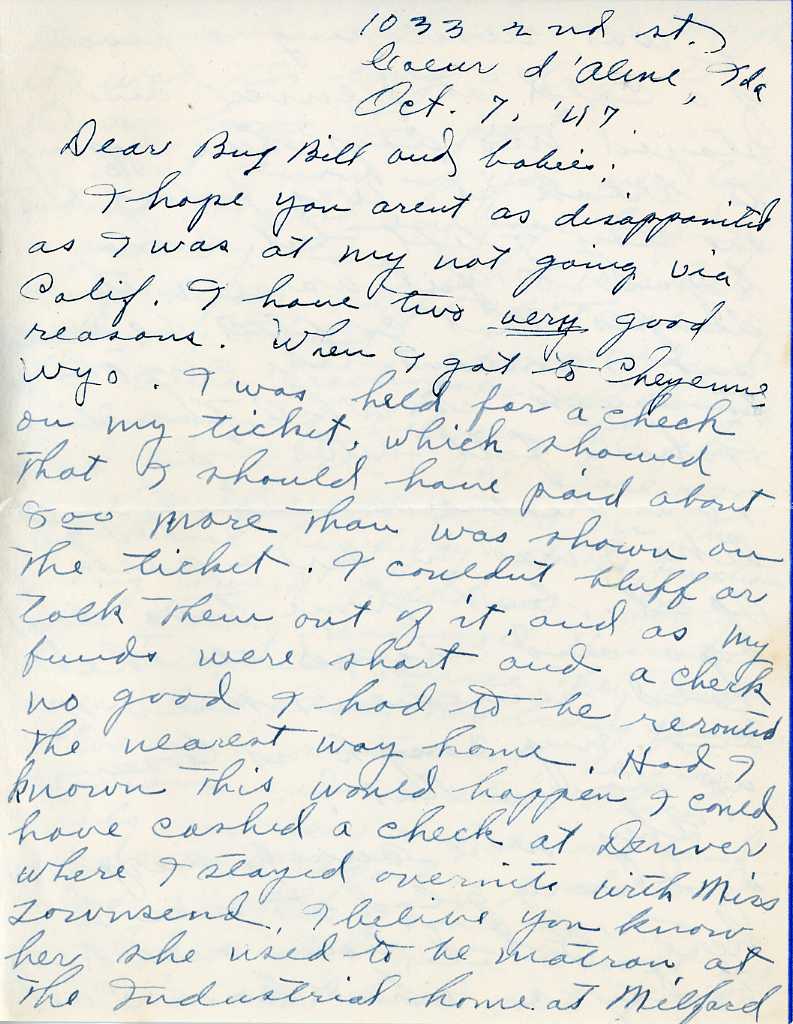 1033 2nd st.,
Coeur d'Alene, Ida
Oct. 7, '47.
Dear Bug Bill and babies:
I hope you arent as disappointed
as I was at my not going via
Calif. I have two very good
reasons. When I got to Cheyenne
Wyo. I was held for a check
on my ticket, which showed
that I should have paid about
8 00 more than was shown on
the ticket. I couldnt bluff or
talk them out of it, and as my
funds were short and a check
no good I had to be rerouted
the nearest way home. Had I
known this would happen I could
have cashed a check at Denver
where I stayed overnite with Miss
Townsend, I belive you know
her she used to be matron at
the Industrial home at Milford